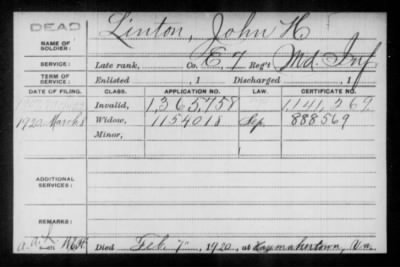 DEAD
Linton, John H
NAME OF SOLDIER:
SERVICE: Late rank, Co. E, 7 Reg't Md. Inf
TERM OF SERVICE: Enlisted , 1 Discharged , 1
DATE OF FILING. CLASS. APPLICATION NO. LAW. CERTIFICATE NO.
Invalid, 1,365,758 1,141,267
1920 March 8 Widow, 1154018 Sep. 888569
Minor,
ADDITIONAL SERVICES:
REMARKS:
Died Feb. 7", 1920, at Haymakertown, Va.